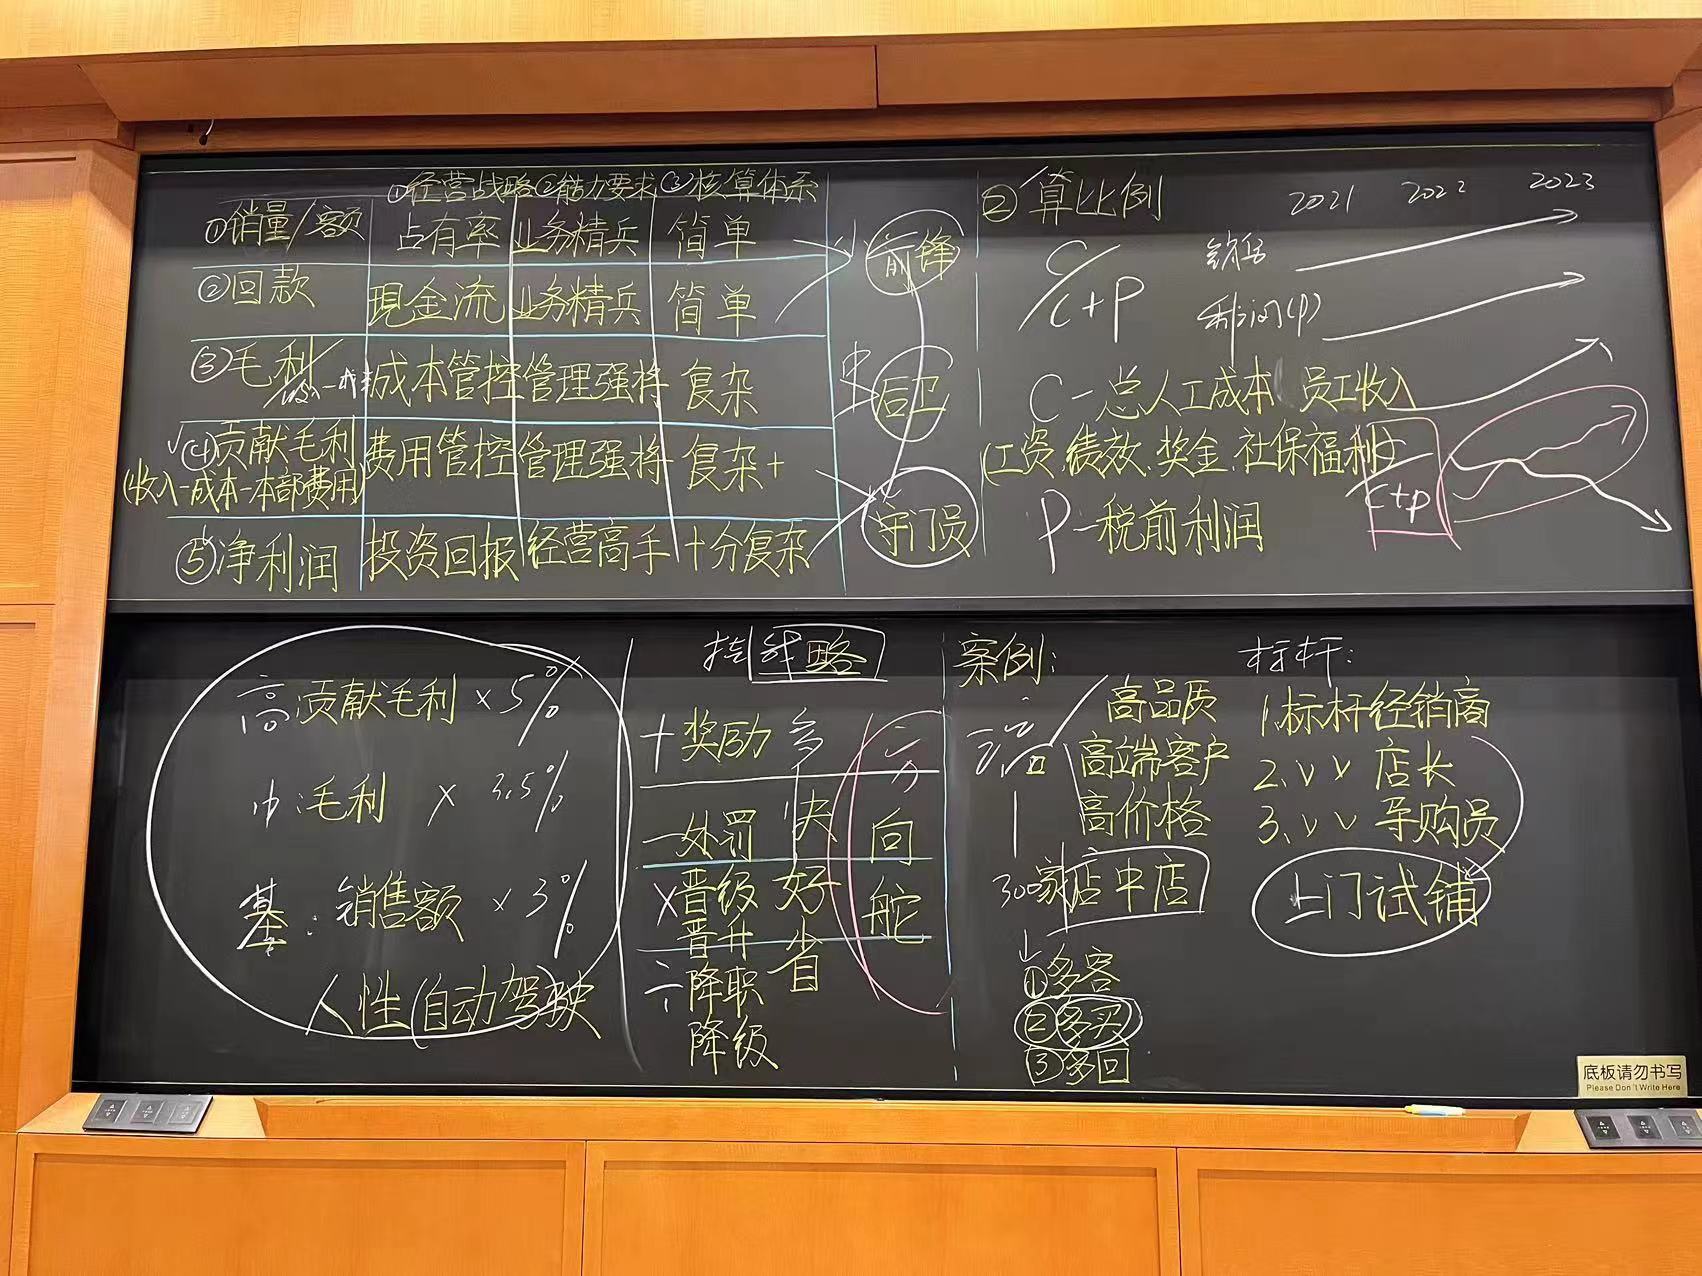 ①经营战略 ②能力要求 ③核算体系
①销量/客额 占有率 业务精兵 简单
②回款 现金流 业务精兵 简单
③毛利 成本管控 管理强将 复杂
④贡献毛利 费用管控 管理强将 复杂+
(收入-成本-本部费用)
⑤净利润 投资回报 经营高手 十分复杂
前锋
后卫
守门员
②算比例
2021 2022 2023
C/C+P
销售
利润(P)
C-总人工成本 员工收入
(工资.绩效.奖金.社保福利)
C+P
P-税前利润
高:贡献毛利×5%
中:毛利 × 3.5%
基:销售额×3%
人性(自动驾驶
战略
+奖励
-处罚
×晋级
晋升
÷降职
降级
多
快
好
省
方
向
舵
案例:
高品质
高端客户
高价格
300家店中店
①多客
②多买
③多回
标杆:
1.标杆经销商
2.〃〃店长
3.〃〃导购员
上门试铺
底板请勿书写
Please Don't Write Here